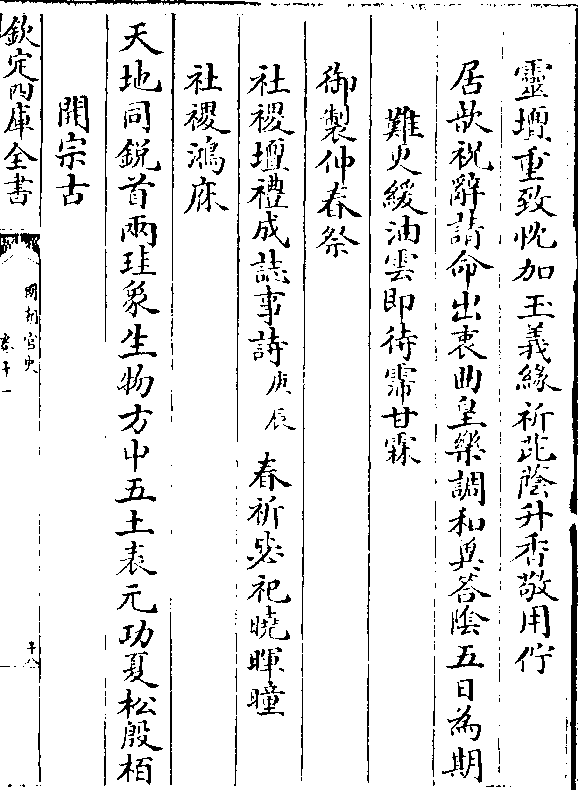 靈壇重致忱加玉義緣祈芘陰升香敬用佇
居歆祝辭請命出衷曲皇樂調和冀答陰五日為期
難更緩油雲即待霈甘霖
御製仲春祭
社稷壇禮成誌事詩庚辰　春祈毖祀曉暉曈
社稷鴻庥
天地同銳首兩珪象生物方中五土表元功夏松殷栢
開宗古
欽定四庫全書
國朝宮史